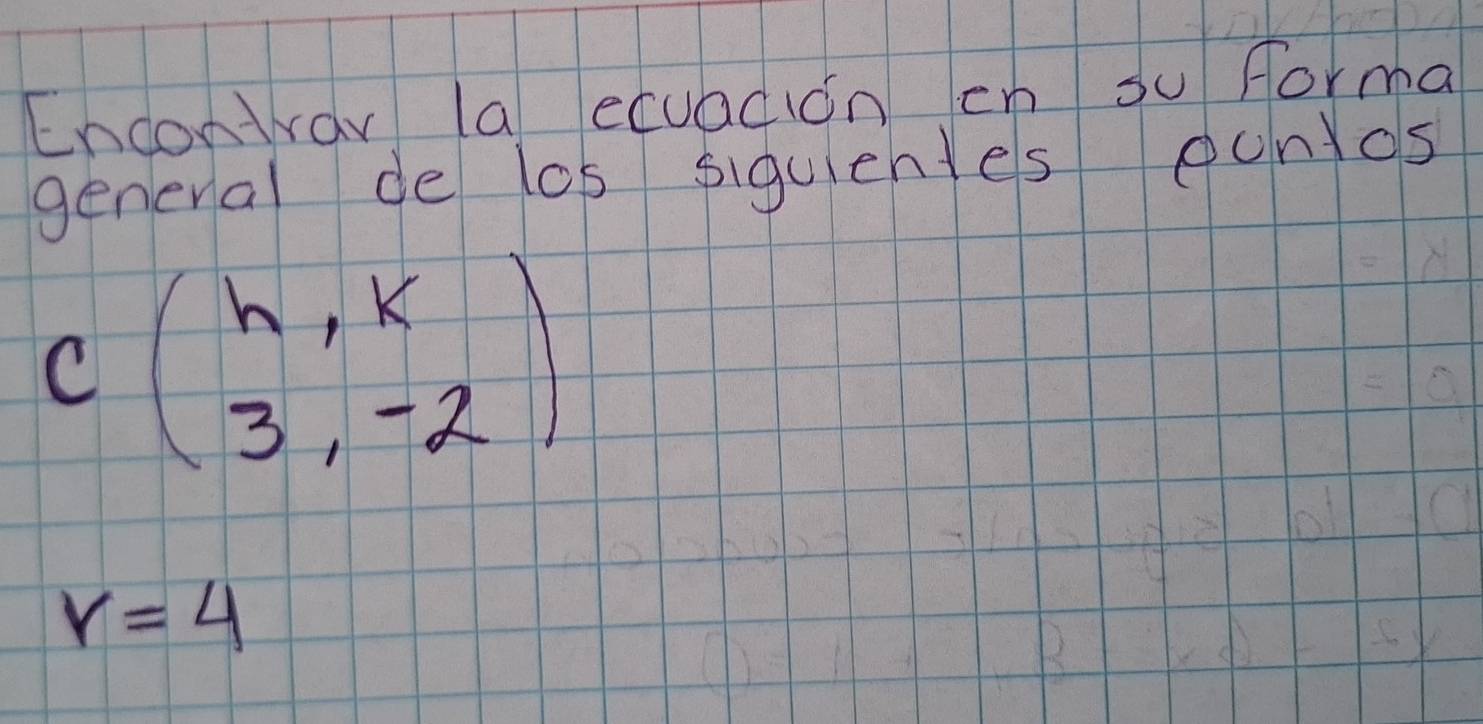 Encontrar la ecuación en su forma
general de los siguientes puntos
C ( h , K
3 , -2 )
r = 4